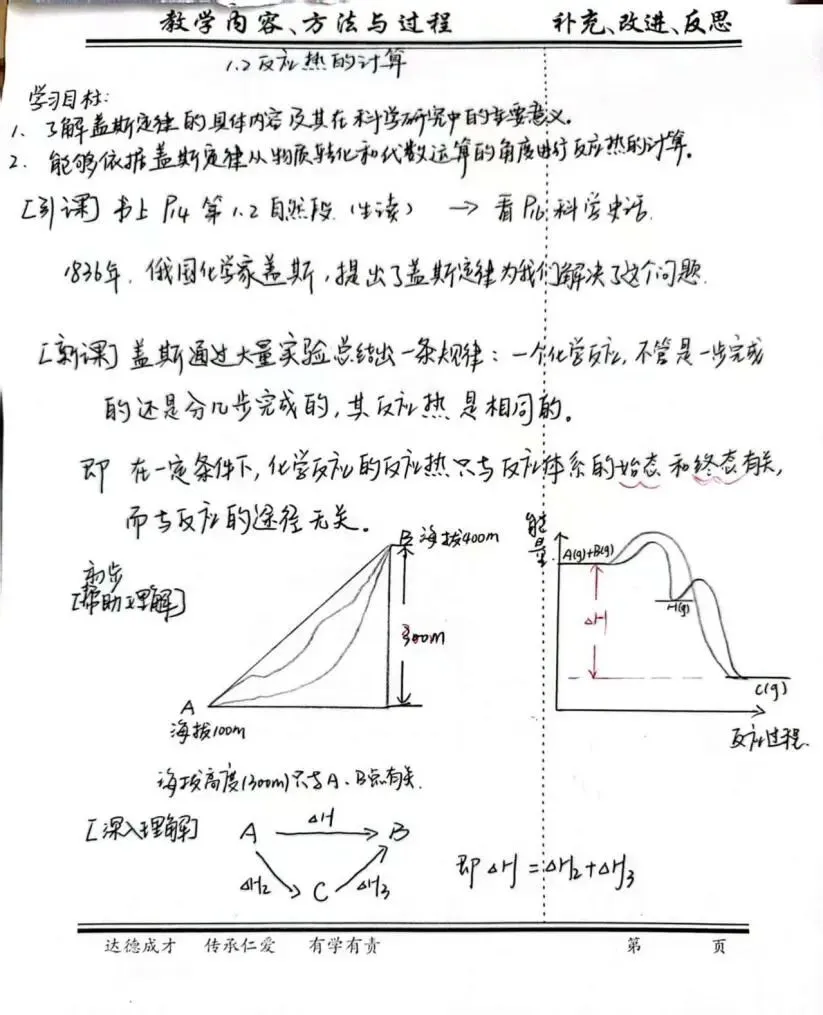 教学内容、方法与过程 补充、改进、反思
1.2 反应热的计算
学习目标:
1. 了解盖斯定律的具体内容及其在科学研究中的重要意义。
2. 能够依据盖斯定律从物质转化和代数运算的角度进行反应热的计算。
[引课] 书上 P14 第1.2自然段 (生读) → 看P16 科学史话.
1836年. 俄国化学家盖斯, 提出了盖斯定律为我们解决了这个问题.
[新课] 盖斯通过大量实验总结出一条规律: 一个化学反应, 不管是一步完成
的还是分几步完成的, 其反应热是相同的。
即 在一定条件下, 化学反应的反应热只与反应体系的始态和终态有关,
而与反应的途径无关。
初步
[帮助理解]
B 海拔400m
300m
A
海拔100m
能量
A(g)+B(g)
H(g)
ΔH
C(g)
反应过程.
海拔高度(300m)只与A、B点有关.
[深入理解]
A ΔH B
ΔH2 C ΔH3
即 ΔH = ΔH2+ΔH3
达德成才 传承仁爱 有学有责 第 页